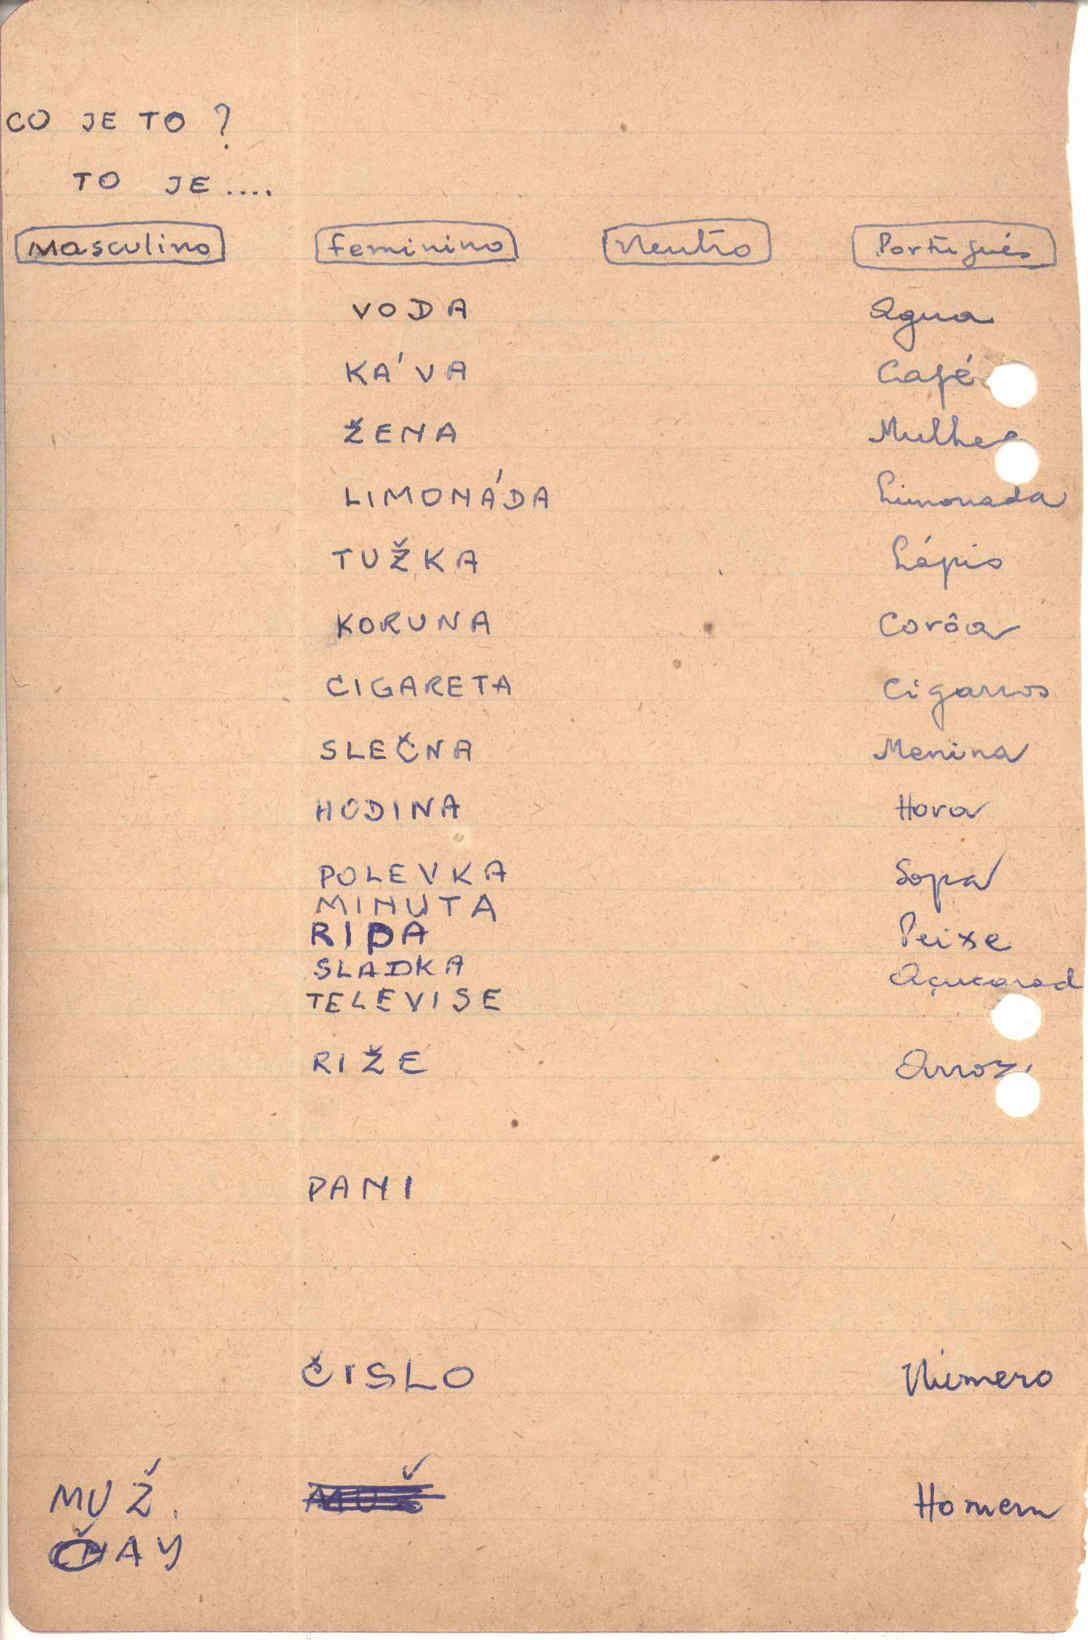 CO JE TO ?
TO JE ....
Masculino Feminino Neutro Português
VODA Agua
KÁVA Café
ŽENA Mulher
LIMONÁDA Limonada
TUŽKA Lápis
KORUNA Corôa
CIGARETA Cigarros
SLEČNA Menina
HODINA Hora
POLEVKA Sopa
MINUTA
RIBA Peixe
SLADKA Açucarad
TELEVISE
RIŽE Arroz
PANI
ČISLO Número
MUŽ. MUŽ Homem
ČAY